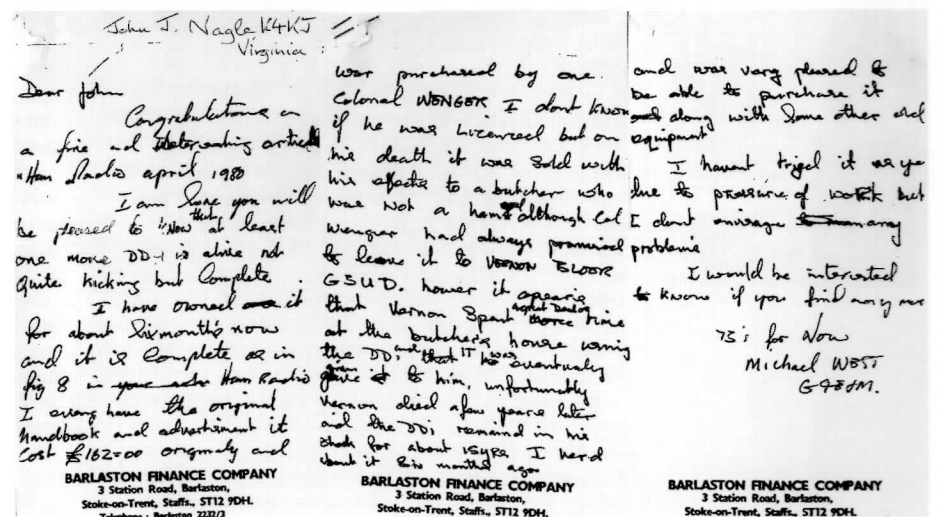 John J. Nagle K4KJ
Virginia
Dear John
Congratulations on
a fine and interesting article
"Ham Radio april 1980
I am sure you will
be pleased to know that at least
one more DD-1 is alive not
quite kicking but complete.
I have owned it
for about six months now
and it is complete as in
fig 8 in Ham Radio
I even have the original
handbook and advertisment it
Cost £162=00 originaly and
BARLASTON FINANCE COMPANY
3 Station Road, Barlaston,
Stoke-on-Trent, Staffs., ST12 9DH.
Telephone : Barlaston 2232/3
was purchased by one
Colonal WENGER I dont know
if he was Licenced but on
his death it was sold with
his effects to a butcher who
was not a ham although Col
Wenger had always promised
to leave it to VERNON
G5UD. hower it
that Vernon Spent great deal of time
at the butcher's house using
the DD1 and it was eventualy
given to him, unfortunatly
Vernon died a few years later
and the DD1 remained in his
shack for about 15yrs I herd
about it six months ago
BARLASTON FINANCE COMPANY
3 Station Road, Barlaston,
Stoke-on-Trent, Staffs., ST12 9DH.
and was very pleased to
be able to purchase it
along with some other old
equipment
I havent tryed it as yet
due to pressure of work but
I dont envisage any
problems
I would be interested
to know if you find any more
73s for Now
Michael WEST
BARLASTON FINANCE COMPANY
3 Station Road, Barlaston,
Stoke-on-Trent, Staffs., ST12 9DH.